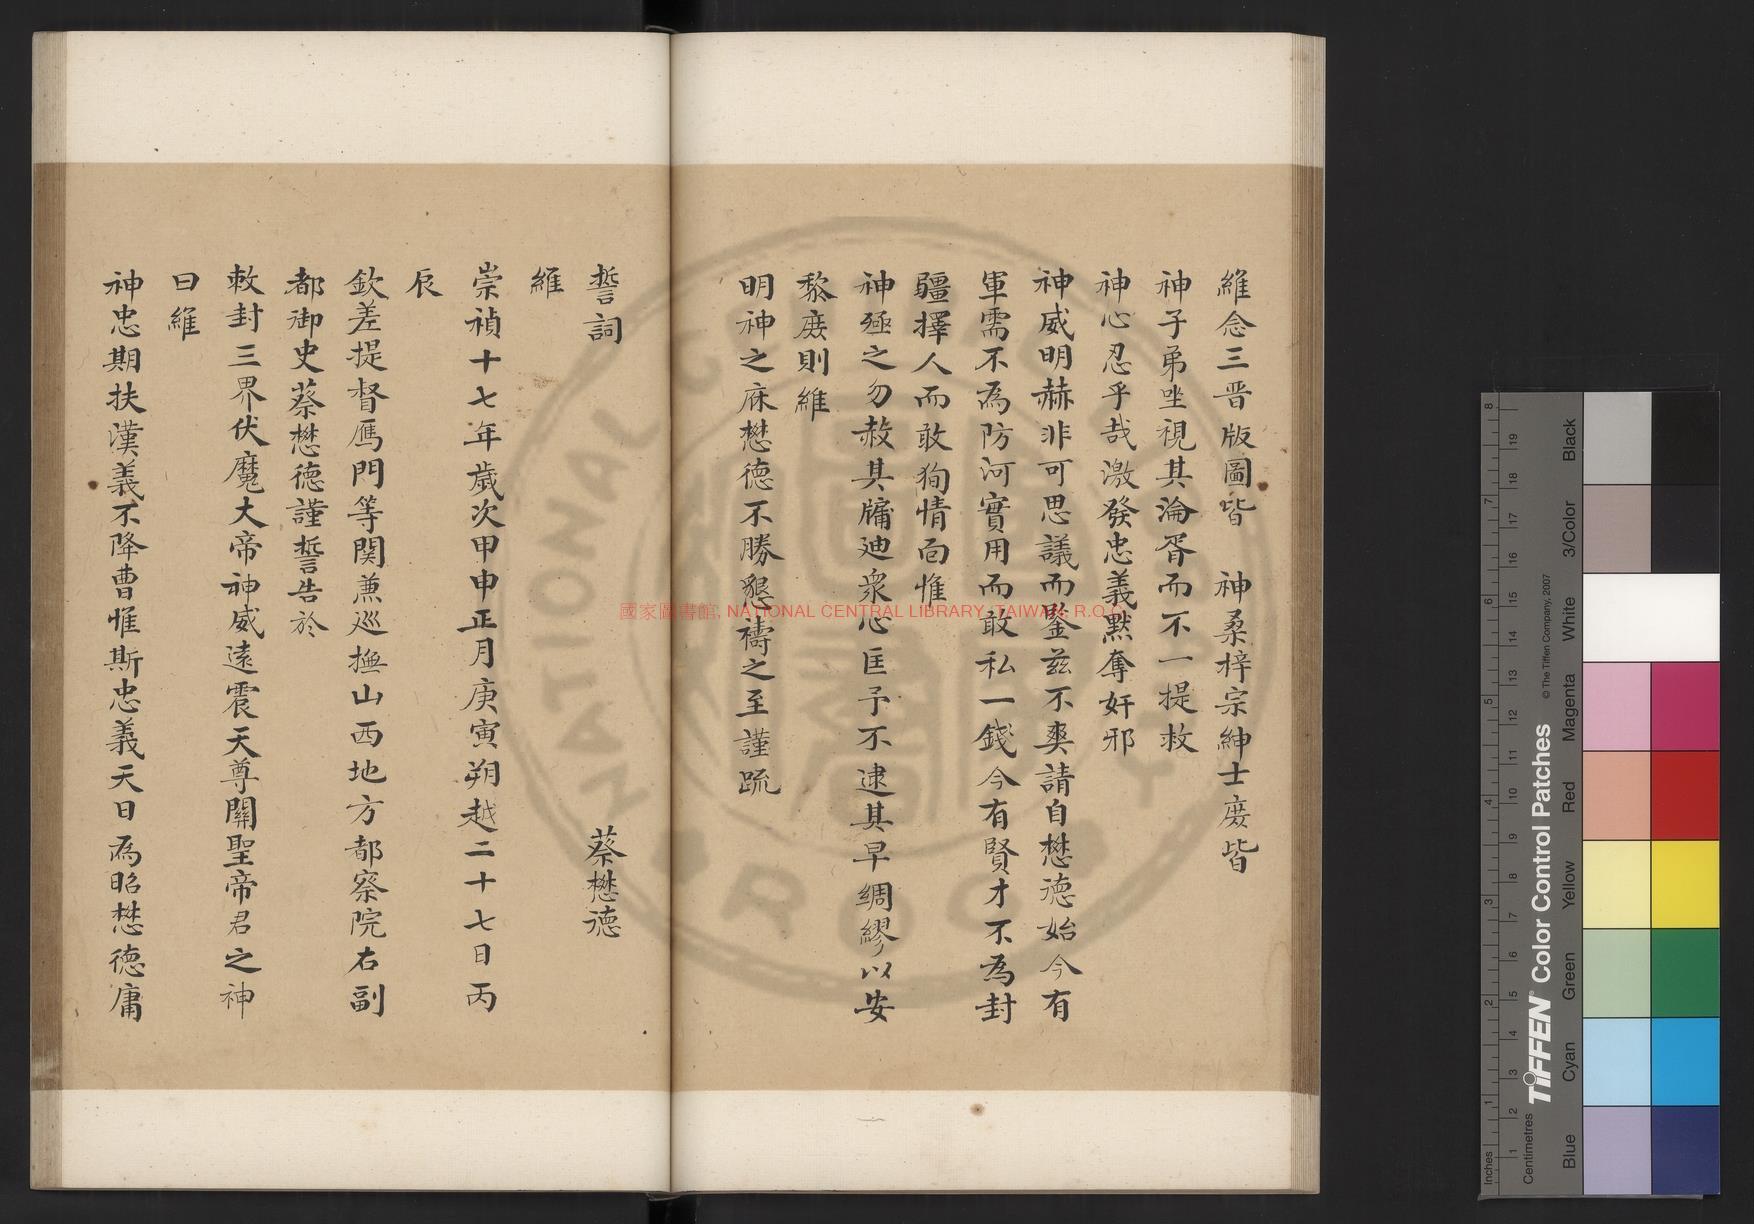 維念三晋版圖皆　神桑梓宗紳士庻皆
神子弟坐視其淪胥而不一提救
神心忍乎哉激發忠義黙奪奸邪
神威明赫非可思議而鍳兹不爽請自懋德始今有
軍需不為防河實用而敢私一錢今有賢才不為封
疆擇人而敢狥情面惟
神殛之勿赦其牖廸衆心匡予不逮其早綢繆以安
黎庻則維
明神之庥懋德不勝懇禱之至謹疏
誓詞　蔡懋德
維
崇禎十七年歲次甲申正月庚寅朔越二十七日丙
辰
欽差提督鴈門等関兼巡撫山西地方都察院右副
都御史蔡懋德謹誓告於
敕封三界伏魔大帝神威遠震天尊關聖帝君之神
曰維
神忠期扶漢義不降曹惟斯忠義天日為昭懋德庸
國家圖書館, NATIONAL CENTRAL LIBRARY, TAIWAN R.O.C
NATIONAL
R O C
Inches
Centimetres
TIFFEN® Color Control Patches
© The Tiffen Company, 2007
Blue
Cyan
Green
Yellow
Red
Magenta
White
3/Color
Black